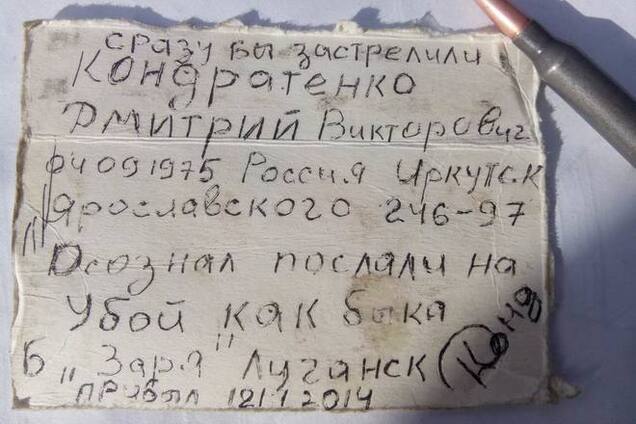 сразу бы застрелили
Кондратенко
Дмитрий Викторович
04091975 Россия Иркутск
Ярославского 246-97
"Осознал послали на
убой как быка"
Б "Заря" Луганск (Конд)
прибыл 12 1 2014